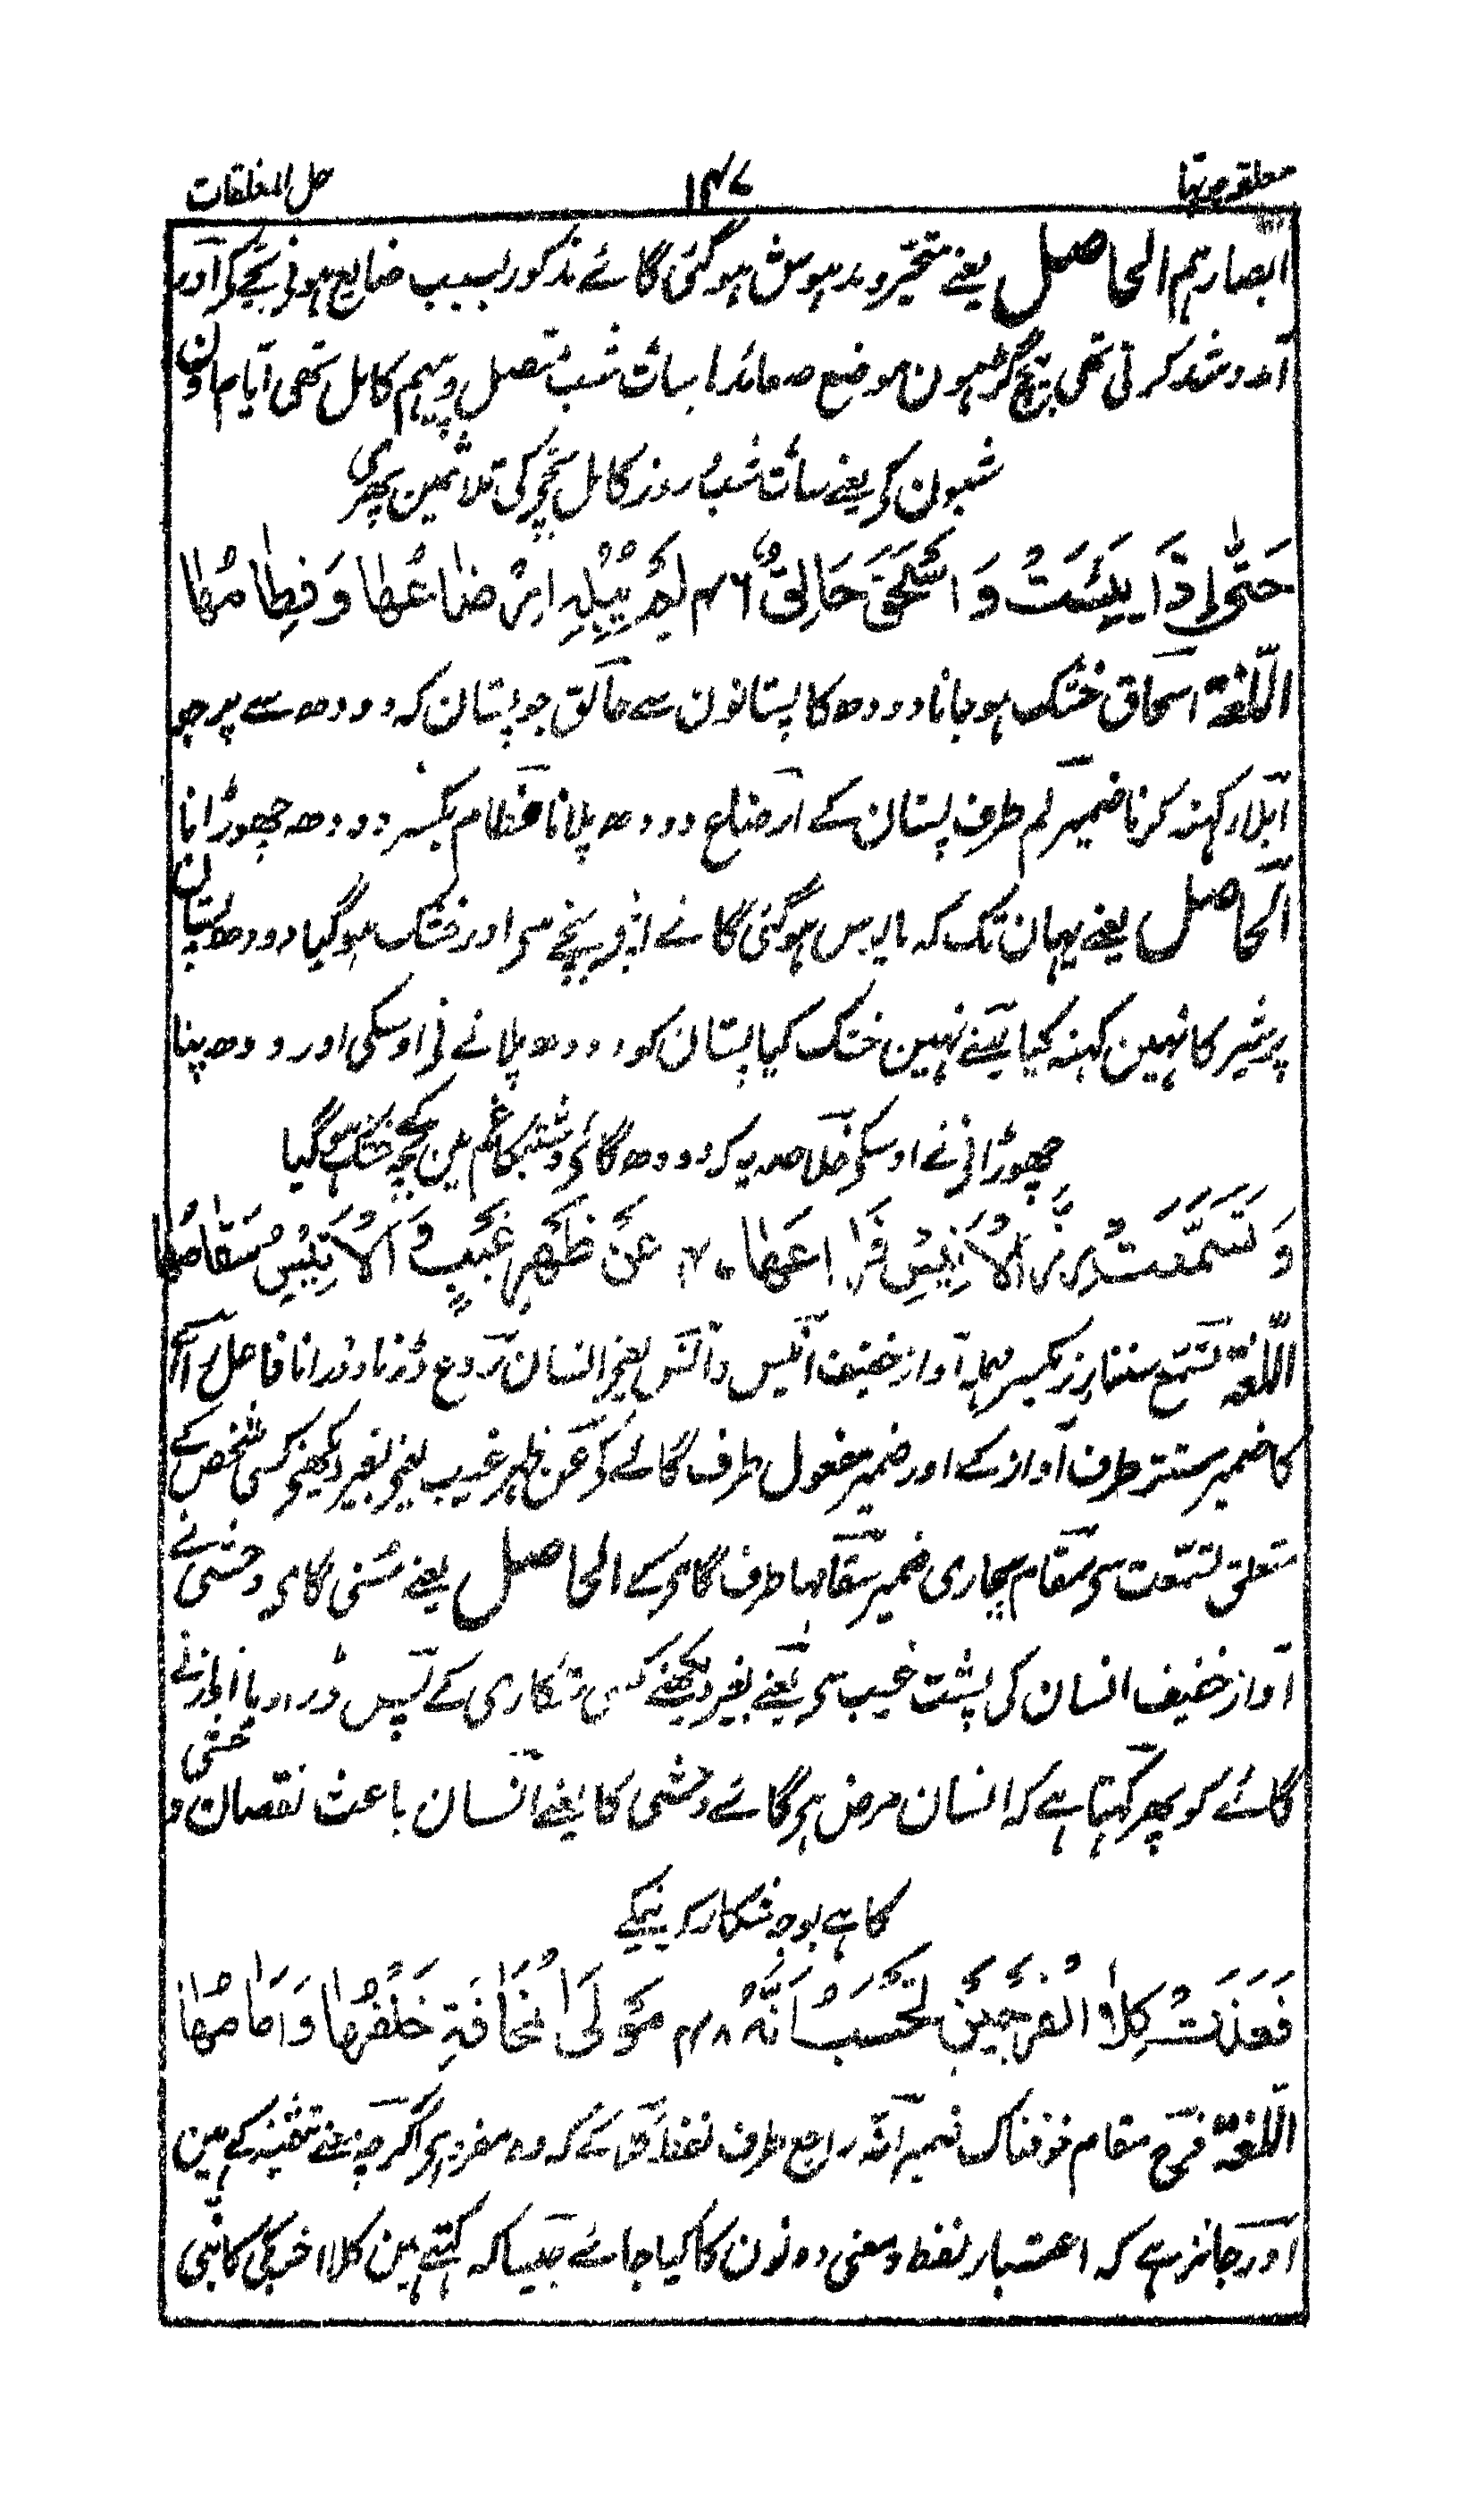 معلقہ چہتہا ۱۴۷ حل المعلقات
ابصارہم الحاصل یعنے متحیر و مدہوش ہوگئی گائے مذکور بسبب ضایع ہونے بچے کے اور
آمد و شد کرتی تھی بیچ گڑھون موضع صعائد سات شب متصل و پیہم کامل تھی ایام اون
شبون کے یعنے سات شب و روز کامل بچے کی تلاش مین پھری
حَتّٰی اِذَا یَئِسَتْ وَ اَسْحَقَ حَالِقٌ ۴۶ لَمْ یُبْلِهِ اِرْضَاعُهَا وَ فِطَامُهَا
اللّغۃ اسحاق خشک ہو جانا دودھ کا پستانون سے حالق جو پستان کہ دودھ سے پر ہو
ابلاء کہنہ کرنا ضمیر لم طرف پستان کے ارضاع دودھ پلانا فطام بکسر دودھ چھوڑانا
الحاصل یعنے یہان تک کہ مایوس ہوگئی گائے اپنے بچے سے اور خشک ہوگیا دودھ پستان
پر شیر کا نہین کہنہ کیا یعنے نہین خشک کیا پستان کو دودھ پلانے نے اوسکی اور دودھ پینا
چھوڑانے نے اوسکے خلاصہ یہ کہ دودھ گائے وحشی کا غم مین بچے کے خشک ہوگیا
وَ تَسَمَّعَتْ رِزَّ الْاَنِیْسِ فَرَاعَهَا ۴۷ عَنْ ظَهْرِ غَیْبٍ وَ الْاَنِیْسُ سَقَامُهَا
اللّغۃ تسمع سننا رز بکسر مہملہ آواز خفیف انیس و انس یعنے انسان روع ڈرنا و ڈرانا فاعل راع
کا ضمیر مستتر طرف آواز کے اور ضمیر مفعول طرف گائے کے عن ظہر غیب یعنے بغیر دیکھنے کسی شخص کے
متعلق تسمعت سے سقام بیماری ضمیر سقامہا طرف گائے کے الحاصل یعنے سنی گائے وحشی نے
آواز خفیف انسان کی پشت غیب سے یعنے بغیر دیکھنے کسی شکاری کے پس ڈرا دیا آواز نے
گائے کو پھر کہتا ہے کہ انسان مرض ہے گائے وحشی کا یعنے انسان باعث نقصان وحشی
کا ہے بوجہ شکار کرنیکے
فَغَدَتْ کِلَا الْفَرْجَیْنِ تَحْسَبُ اَنَّهُ ۴۸ مَوْلَی الْمَخَافَةِ خَلْفُهَا وَ اَمَامُهَا
اللّغۃ فرج مقام خوفناک ضمیر انہ راجع طرف لفظ کلا کے کہ وہ مفرد ہے اگرچہ معنے تثنیہ کے ہین
اور جائز ہے کہ اعتبار لفظ و معنی دونون کا کیا جائے جیسا کہ کہتے ہین کلا اخویک